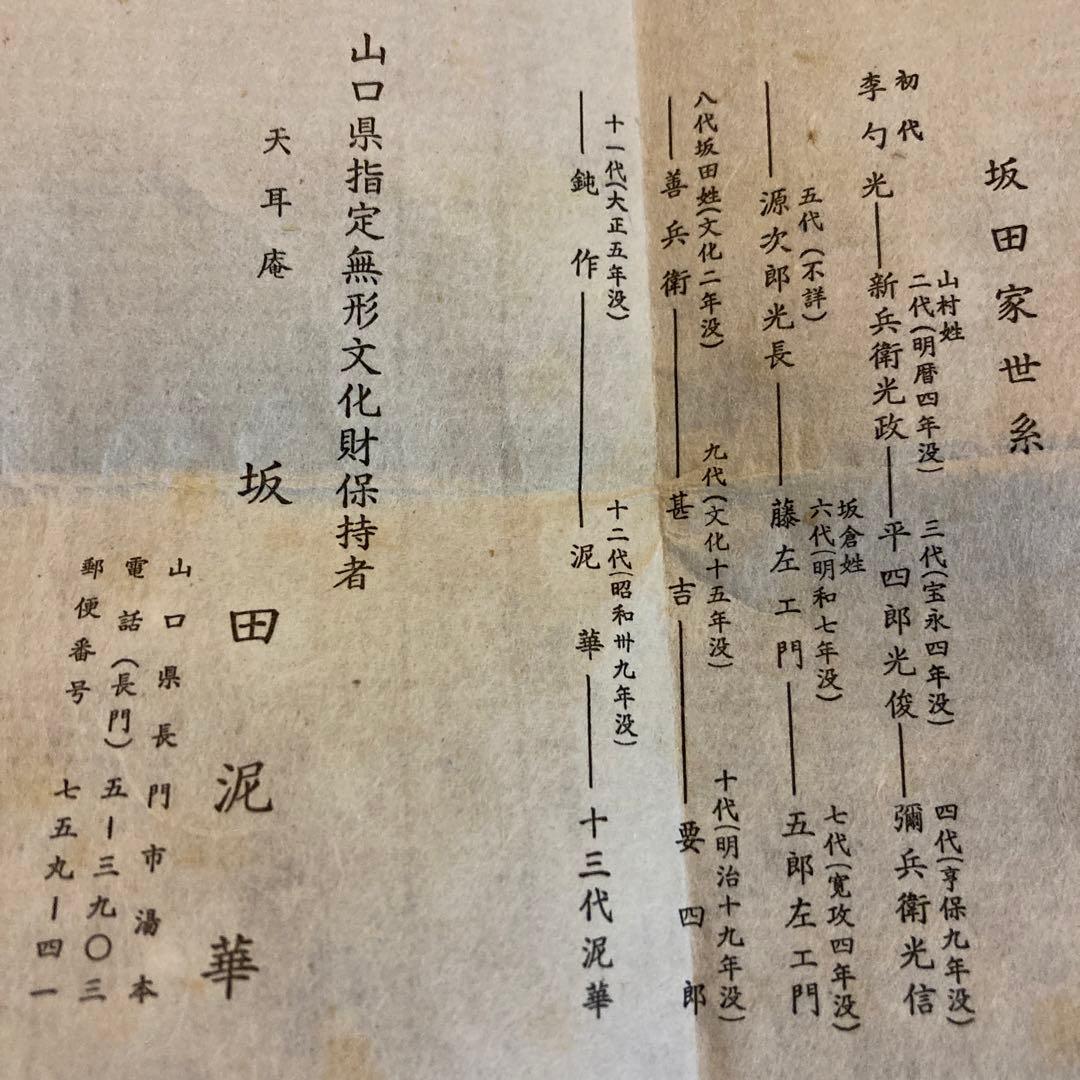 坂田家世系
初代
李勺光―新兵衛光政―平四郎光俊―彌兵衛光信
山村姓
二代(明暦四年没)
三代(宝永四年没)
四代(享保九年没)
五代(不詳)
―源次郎光長―藤左エ門―五郎左エ門
坂倉姓
六代(明和七年没)
七代(寛攻四年没)
八代坂田姓(文化二年没)
九代(文化十五年没)
十代(明治十九年没)
―善兵衛―甚吉―要四郎
十一代(大正五年没)
十二代(昭和卅九年没)
―鈍作―泥華―十三代泥華
山口県指定無形文化財保持者
天耳庵
坂田泥華
山口県長門市湯本
電話(長門)五―三九〇三
郵便番号七五九―四一